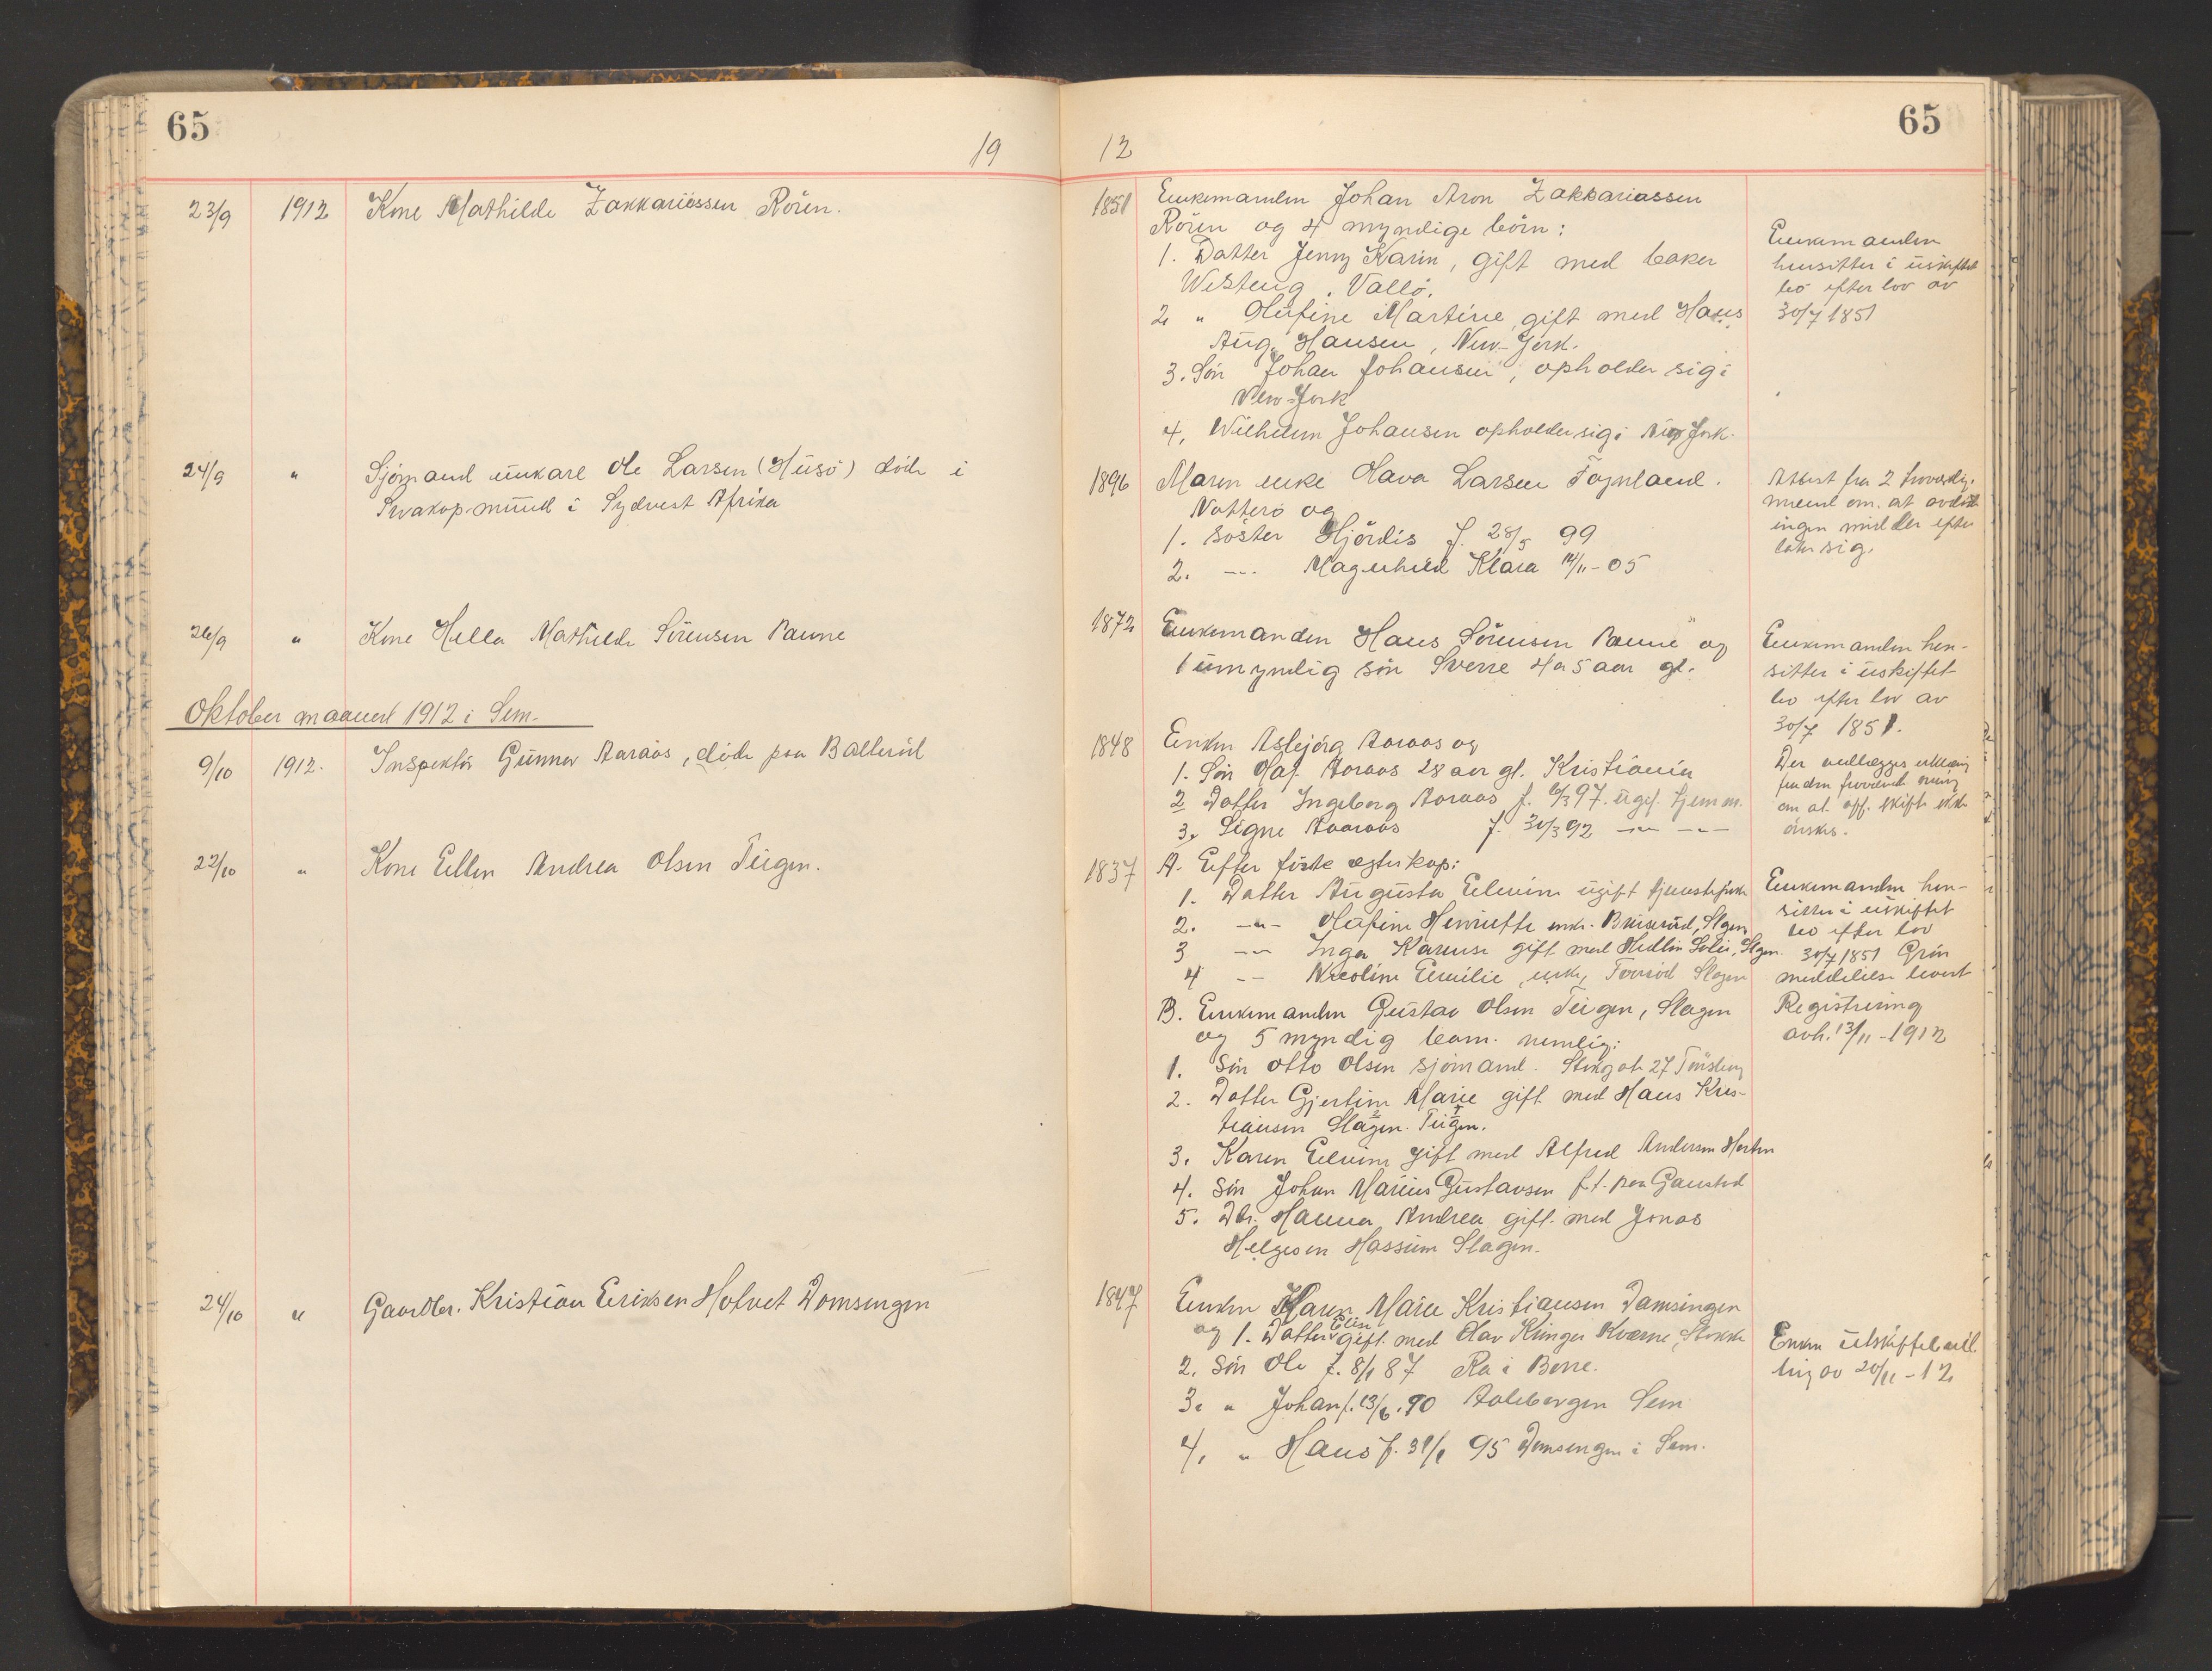 65
19
23/9 1912 Kone Mathilde Zakkariassen Rören.
24/9 " Sjömand unkarl Ole Larsen (Husö) döde i
Svakop-mund i Sydvest Afrika
26/9 " Kone Hella Mathilde Sörensen Paune
Oktober maaned 1912 i Sem.
9/10 1912. Inspektör Gunnar Aaraas, döde paa Ballerud
22/10 " Kone Ellen Andrea Olsen Teigen.
24/10 " Gaardbr. Kristian Eriksen Hotvet Domsengen
65
12
1851 Enkemanden Johan Aron Zakkariassen
Rören og 4 myndige börn:
1. Datter Jenny Karin, gift med baker
Westeng, Vallö.
2 " Olufine Martine, gift med Hans
Aug. Hansen, New-Jork.
3. Sön Johan Johansen, opholder sig i
New-Jork
4. Wilhelm Johansen opholder sig i New Jork.
Enkemanden
hensitter i uskiftet
bo efter lov av
30/7 1851
1896 Moren enke Olava Larsen Föynland.
Nötterö og
1. söster Hjördis f. 28/5 99
2. -"- Magnhild Klara 14/11-05
Attest fra 2 troværdige
mænd om at avdöde
ingen midler efter
later sig.
1872 Enkemanden Hans Sörensen Paune og
1 umyndig sön Sverre 4 a 5 aar gl.
Enkemanden hen-
sitter i uskiftet
bo efter lov av
30/7 1851.
1848 Enken Asbjörg Aaraas og
1. Sön Olaf Aaraas 28 aar gl. Kristiania
2 Datter Ingeborg Aaraas f. 97. ugif. hjemme.
3. Signe Aaraas f. 30/3 92 -"- -"-
Der vedlægges erklæring
om at off. skifte ikke
önskes.
1837 A. Efter förste egteskap:
1. Datter Augusta Elvine ugift tjenestepike
2. -"- Olufine Henriette enke. Slagen
3 -"- Inga Karense gift med Solie, Slagen.
4 -"- Nicoline Emilie, enke, Slagen
B. Enkemanden Gustav Olsen Teigen, Slagen
og 5 myndig barn. nemlig:
1. Sön Otto Olsen sjömand. 27 Tönsberg
2. Datter Gjertine Marie gift med Hans Kris-
tiansen Slagen. Teigen.
3. Karen Elvine gift med Alfred Andersen Horten
4. Sön Johan Marius Gustavsen f.t. paa Gaustad
5. Dtr. Hanna Andrea gift med Jonas
Helgesen Hassum Slagen.
Enkemanden hen-
sitter i uskiftet
bo efter lov
30/7 1851
meddelelse
Registrering
avh. 13/11-1912
1847 Enken Karen Marie Kristiansen Damsengen
og 1. Datter Elise gift. med Olav Klinger Kværne, Stokke
2. Sön Ole f. 8/1 87 Ra i Borre.
3. " Johan f. 13/6. 90 Sem
4. " Hans f. 31/1 95 Domsengen i Sem.
Enken
av 20/11-12